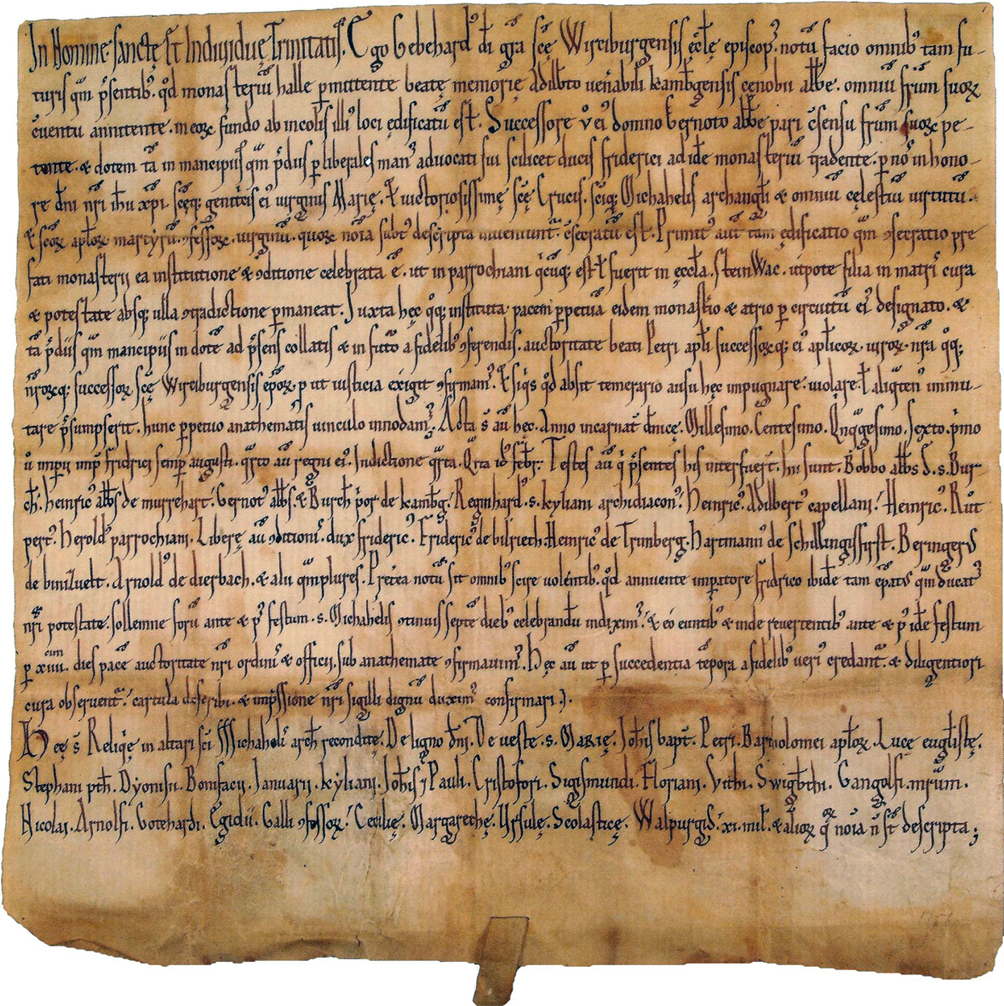 In Nomine sanctę Et Indiuiduę Trinitatis. Ego Gebehard' d'i gr̄a scę̄ Wirciburgensis ęccl̄e episcop'. notū facio omnib' tam fu-
turis qm̄ p̄sentib'. qd̄ monasteriū halle p̄mittente beatę memorię adilb̄to uen̄abili kamb̄gensis cenobii abb̄e. omniū fr̄um suoꝝ
cuentu annitente. in eoꝝ fundo ab incolis illi' loci ędificatū est. Successore ū ei' domno Gernoto abb̄e pari c̄sensu fr̄um suoꝝ pe-
tente. & dotem tā in mancipiis qm̄ p̄diis ꝑ liberales man' aduocati sui scilicet ducis friderici ad idē monasteriū tradente. p nō in hono-
re dn̄i nr̄i ih̄u xp̄i scę̄q; genit̄cis ei' uirginis Marię. & uictoriosissimę scę̄ Crucis. scīq; Michahelis archangl̄i & omniū cęlestiū uirtutū.
& scōꝝ apl̄oꝝ martyrū. ꝯfessoꝝ. uirginū. quoꝝ noīa subt' descripta inueniunt̄. c̄secratū est. Primit' aut̄ tam ędificatio qm̄ ꝯsecratio pre
fati monasterii ea institutione & ꝯditione celebrata ē. ut in parrochiani q̄cūq; est t̄ fuerit in ęccl̄a. SteinWac. utpote filia in matris cura
& potestate absq; ulla ꝯtradictione ꝑmaneat. Juxta hęc qq; instituta pacem ꝑpetuā eidem monast̄io & atrio ꝑ circuitū ei' designato. &
tā p̄diis qm̄ mancipiis in dotē ad p̄sens collatis & in futō a fidelib' ꝯferendis. auctoritate beati Petri apl̄i successoꝝq; ei' apl̄icoꝝ uiroꝝ. nr̄a qq;
nr̄oꝝq; successoꝝ scę̄ Wirciburgensis ep̄oꝝ. ꝓut iusticia exigit ꝯfirmam'. Et siq̄s qd̄ absit temerario ausu hęc impugnare. uiolare. t̄ aliqten' inminu-
tare p̄sumpserit. hunc ꝑpetuo anathematis uinculo innodam'. Acta s̄ aū hęc. Anno incarnat̄ dn̄icę. Millesimo. Centesimo. Qnq̄gesimo. Sexto. p̄mo
ū impii imp̄. fridrici semp̄ augusti. q̄rto aū regni ei'. Indictione q̄rta. Qrta id' febr̄. Testes aū q̄ p̄sentes his interfuer̄t. hii sunt. Bobbo abb̄s d. s. Bur
ch̄. heinric' abb̄s de murrehart. Gernot' abb̄s. & Burch̄. p̄or de kamb̄g. Reginhard'. s. kyliani archidiacon'. Heinric'. Adilbert' capellani. Heinric'. Rūt
pert'. Herold' parrochiani. Liberę aū ꝯditioni'. dux frideric'. Frideric' de bilrieth. Heinric' de Trimberg. Hartmann' de Schillingisfirst. Beringer'
de biniżuelt. Arnold' de dierbach. & alii qm̄plures. Pretea notū sit omnib' scire uolentib'. qd̄ annuente imp̄atore fridrico ibidē tam ep̄at' qm̄ ducat'
nr̄i potestate. sollemne forū ante & p' festum. s. Michahelis ꝯtinuis septē dieb' celebrandū indixim'. & eo euntib' & inde reuertentib' ante & p' idē festum
ꝑ xiiii. dies pacē auctoritate nr̄i ordini' & officii. sub anathemate ꝯfirmauim'. Hęc aū ut ꝑ succedentia tēpora a fidelib' ueri' credant̄. & diligentiori
cura obseruent̄. cartulā describi. & imp̄ssione nr̄i sigilli dignū duxim' confirmari.
Hęę s̄ Reliqię in altari sc̄i Michahelis arch̄. reconditę. De ligno dn̄i. De ueste. s. Marię. Joh̄is bapt̄. Petri. Bartholomei apl̄oꝝ. Luce eugl̄istę.
Stephani pth̄. Dyonisii. Bonifacii. Januarii. kyliani. Joh̄is & Pauli. Cristofori. Sigismundi. Floriani. Vithi. Swigb̄thi. Gangolfi. mr̄um.
Nicolai. Arnolfi. Gotehardi. Egidii. Galli ꝯfessoꝝ. Cecilię. Margarethę. Ursulę. Scolasticę. Walpurgis'. xi. mil̄. & alioꝝ q̄ꝝ noīa n̄ s̄t descripta;